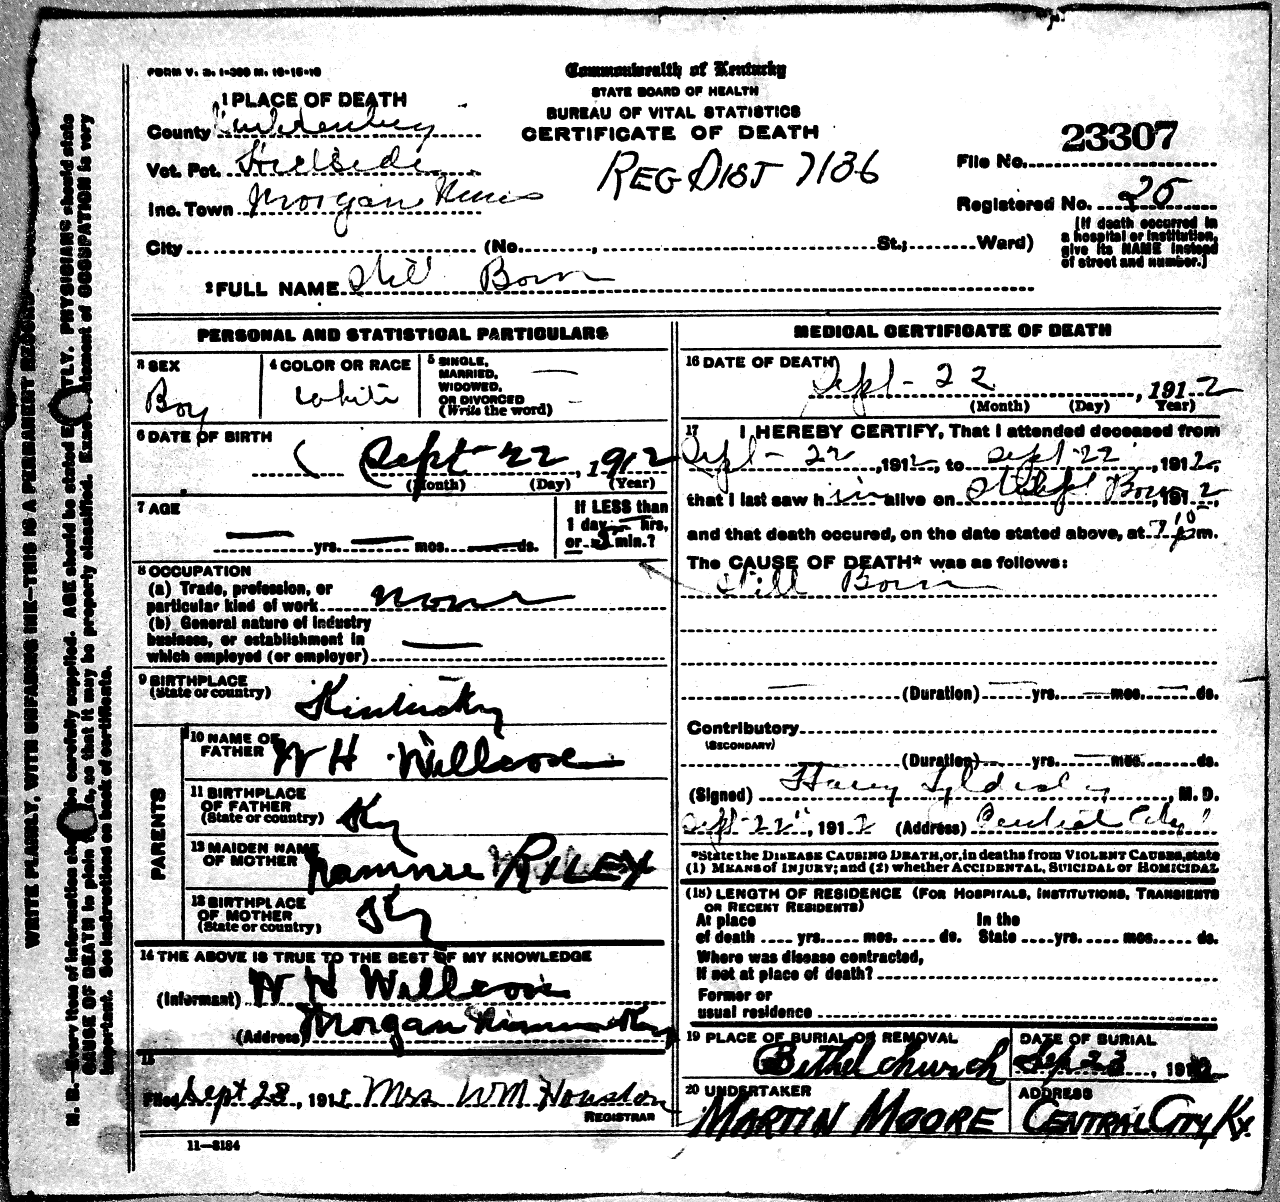 FORM V. S. 1-300 M. 10-15-10
Commonwealth of Kentucky
STATE BOARD OF HEALTH
BUREAU OF VITAL STATISTICS
CERTIFICATE OF DEATH
REG DIST 7136
1 PLACE OF DEATH
County Muhlenberg
Vot. Pct. Hillside
Inc. Town Morgan Mines
City (No. , St.; Ward)
File No. 23307
Registered No. 25
[If death occurred in
a hospital or institution,
give its NAME instead
of street and number.]
2 FULL NAME Still Born
PERSONAL AND STATISTICAL PARTICULARS
3 SEX
Boy
4 COLOR OR RACE
White
5 SINGLE,
MARRIED,
WIDOWED,
OR DIVORCED
(Write the word)
6 DATE OF BIRTH
Sept 22, 1912
(Month) (Day) (Year)
7 AGE
yrs. mos. ds.
If LESS than
1 day hrs,
or min.?
8 OCCUPATION
(a) Trade, profession, or
particular kind of work none
(b) General nature of industry
business, or establishment in
which employed (or employer)
9 BIRTHPLACE
(State or country)
Kentucky
PARENTS
10 NAME OF
FATHER W H Willcox
11 BIRTHPLACE
OF FATHER
(State or country) Ky
12 MAIDEN NAME
OF MOTHER Nannie RILEY
13 BIRTHPLACE
OF MOTHER
(State or country) Ky
14 THE ABOVE IS TRUE TO THE BEST OF MY KNOWLEDGE
(Informant) W H Willcox
(Address) Morgan Ky
15
Filed Sept 28, 191 Mrs WM Houston
REGISTRAR
11-8184
MEDICAL CERTIFICATE OF DEATH
16 DATE OF DEATH
Sept - 22, 1912
(Month) (Day) Year)
17 I HEREBY CERTIFY, That I attended deceased from
Sept - 22, 1912, to Sept 22, 1912,
that I last saw him alive on Still Born, 1912,
and that death occured, on the date stated above, at 7 10 p m.
The CAUSE OF DEATH* was as follows:
Still Born
(Duration) yrs. mos. ds.
Contributory
(SECONDARY)
(Duration) yrs. mos. ds.
(Signed) Harry, M. D.
Sept 22, 1912 (Address) Central City
*State the DISEASE CAUSING DEATH, or, in deaths from VIOLENT CAUSES, state
(1) MEANS OF INJURY; and (2) whether ACCIDENTAL, SUICIDAL or HOMICIDAL
(18) LENGTH OF RESIDENCE (FOR HOSPITALS, INSTITUTIONS, TRANSIENTS
OR RECENT RESIDENTS)
At place In the
of death yrs. mos. ds. State yrs. mos. ds.
Where was disease contracted,
if not at place of death?
Former or
usual residence
19 PLACE OF BURIAL OR REMOVAL
Bethel church
DATE OF BURIAL
Sep 23, 1912
20 UNDERTAKER
MARTIN MOORE
ADDRESS
CENTRAL CITY KY.
WRITE PLAINLY, WITH UNFADING INK—THIS IS A PERMANENT RECORD
N. B.—Every item of information should be carefully supplied. AGE should be stated EXACTLY. PHYSICIANS should state
CAUSE OF DEATH in plain terms, so that it may be properly classified. Exact statement of OCCUPATION is very
important. See instructions on back of certificate.